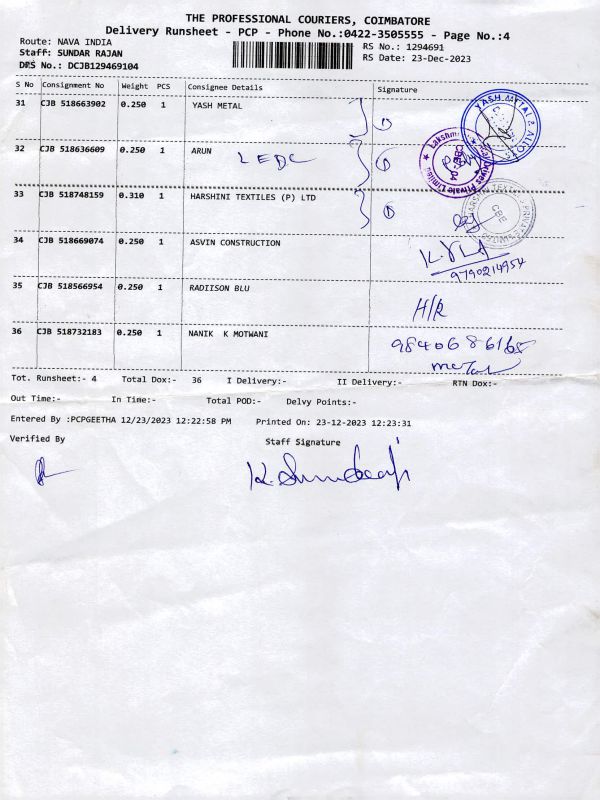 THE PROFESSIONAL COURIERS, COIMBATORE
Delivery Runsheet - PCP - Phone No.:0422-3505555 - Page No.:4
Route: NAVA INDIA
RS No.: 1294691
Staff: SUNDAR RAJAN
RS Date: 23-Dec-2023
DPS No.: DCJB129469104
S No Consignment No Weight PCS Consignee Details Signature
31 CJB 518663902 0.250 1 YASH METAL
YASH METAL & ALLOYS
32 CJB 518636609 0.250 1 ARUN LEDC
Private Limited
CBE. 04
33 CJB 518748159 0.310 1 HARSHINI TEXTILES (P) LTD
CBE
34 CJB 518669074 0.250 1 ASVIN CONSTRUCTION
9790214954
35 CJB 518566954 0.250 1 RADIISON BLU
H/R
36 CJB 518732183 0.250 1 NANIK K MOTWANI
9840686168
Tot. Runsheet:- 4 Total Dox:- 36 I Delivery:- II Delivery:- RTN Dox:-
Out Time:- In Time:- Total POD:- Delvy Points:-
Entered By :PCPGEETHA 12/23/2023 12:22:58 PM Printed On: 23-12-2023 12:23:31
Verified By Staff Signature